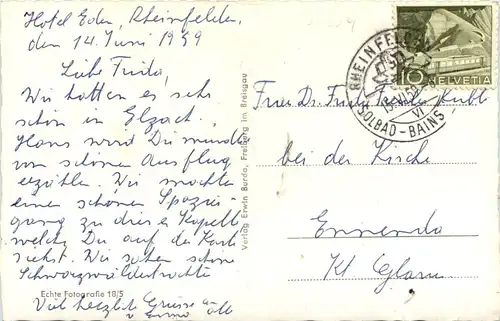 Hotel Eden, Rheinfelden,
den 14. Juni 1959
Liebe Frida,
Wir hatten es sehr
schön in Elzach.
Hans wird Dir mündl.
von schönen Ausflug
erzählen. Wir machten
einen schönen Spazier-
gang zu dieser Kapelle
welche Du auf der Karte
siehst. Wir sahen schöne
Schwarzwäldertrachten
Echte Fotografie 18/5
Viel herzliche Grüsse
Verlag Erwin Burda, Freiburg im Breisgau
RHEINFELDEN
SOLBAD-BAINS
VI
10 HELVETIA
Frau Dr. Frida
bei der Kirche
Ennenda
Kt. Glarus